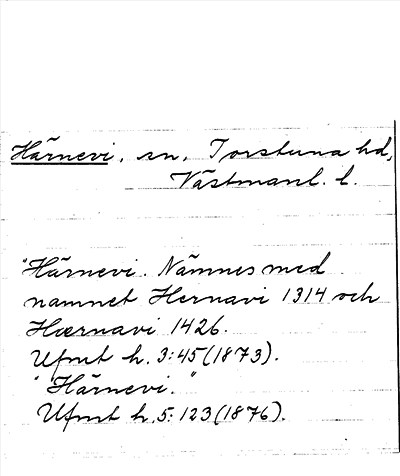 Härnevi, sn, Torstuna hd,
Västmanl. l.
"Härnevi. Nämnes med
namnet Hernavi 1314 och
Hærnavi 1426.
Ufmt h. 3:45 (1873).
"Härnevi."
Ufmt h. 5:123 (1876).